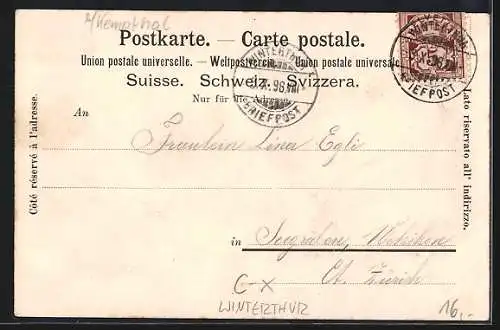 a/Kempthal
Postkarte. — Carte postale.
Union postale universelle. — Weltpostverein. — Unione postale universale
Suisse. Schweiz. Svizzera.
Nur für die Adresse.
WINTERTHUR
BRIEFPOST
WINTERTHUR
BRIEFPOST
Côté réservé à l'adresse.
Lato riservato all' indirizzo.
An
Fräulein Lina Egli
in Seegräben, Wetzikon
Ct. Zürich
C-X
WINTERTHUR
16,-